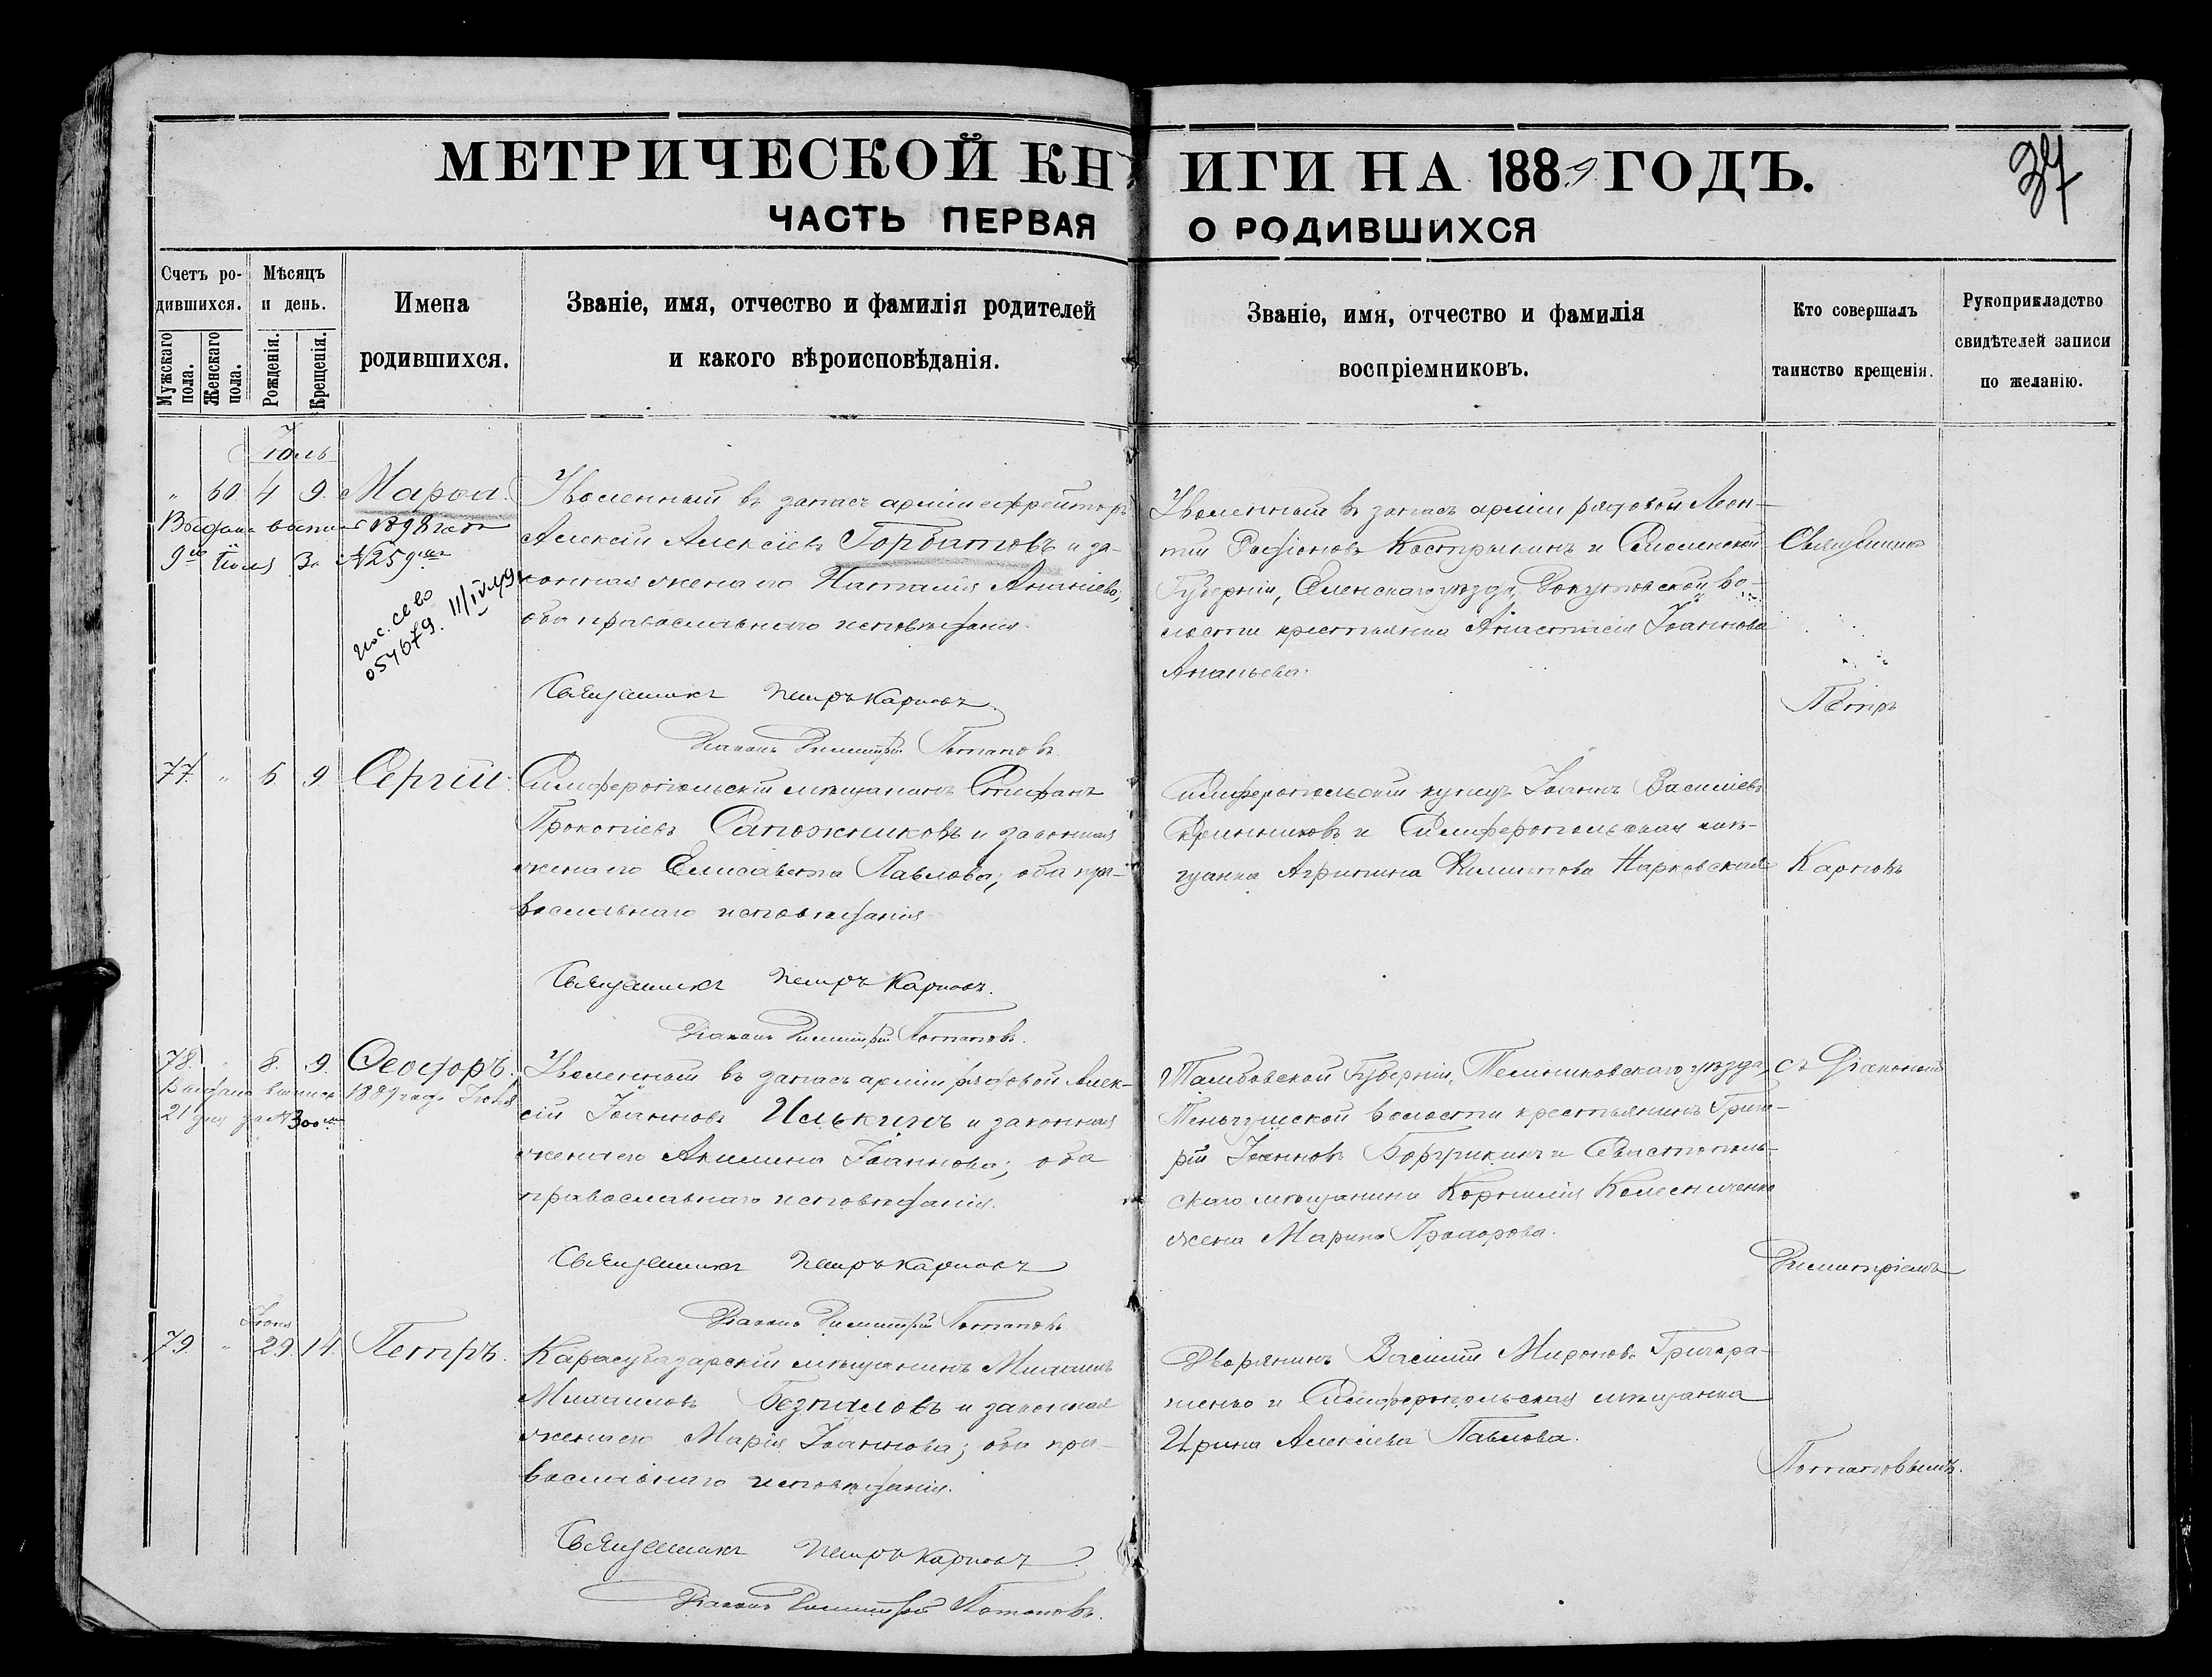 МЕТРИЧЕСКОЙ КНИГИ НА 1889 ГОДЪ.
37
ЧАСТЬ ПЕРВАЯ О РОДИВШИХСЯ
Счетъ родившихся.
Мужскаго пола.
Женскаго пола.
Мѣсяцъ и день.
Рожденія.
Крещенія.
Имена
родившихся.
Званіе, имя, отчество и фамилія родителей
и какого вѣроисповѣданія.
Званіе, имя, отчество и фамилія
воспріемниковъ.
Кто совершалъ
таинство крещенія.
Рукоприкладство
свидѣтелей записи
по желанію.
Іюль
" 60 4 9. Марѳа.
1898 года
9го Іюля За №259
054679. 11/IV
Уволенный въ запасъ арміи ефрейторъ
Алексій Алексіевъ Горбатовъ и за-
конная жена его Наталія Ананіева,
оба православнаго исповѣданія.
Уволенный въ запасъ арміи рядовой Леон-
тій Родіоновъ Кострыкинъ и Смоленской
Губерніи, Еленскаго уѣзда, во-
лости крестьянка Анастасія Іоаннова
Ананьева.
Священникъ Петръ Карповъ
Діаконъ Димитрій Потаповъ.
77. " 5. 9 Сергій.
Симферопольскій мѣщанинъ Стефанъ
Прокопіевъ Сапожниковъ и законная
жена его Елисавета Павлова; оба пра-
вославнаго исповѣданія
Симферопольскій купецъ Іоаннъ Василіевъ
и Симферопольская мѣ-
щанка Агрипина Филипова
Священникъ Петръ Карповъ.
Діаконъ Димитрій Потаповъ.
78. " 8. 9. Ѳеодоръ.
Выдана выпись 1889 года Іюля
21 дня за №300
Уволенный въ запасъ арміи рядовой Алек-
сій Іоанновъ Илькинъ и законная
жена его Акилина Іоаннова; оба
православнаго исповѣданія.
Тамбовской Губерніи, Темниковскаго уѣзда,
Теньгушской волости крестьянинъ Григо-
рій Іоанновъ и Севастополь-
скаго мѣщанина Корнилія Колесниченко
жена Марина Прохорова.
Священникъ Петръ Карповъ
Діаконъ Димитрій Потаповъ
Іюня
79. " 29. 14. Петръ.
Карасубазарскій мѣщанинъ Михаилъ
Михаиловъ и законная
жена его Марія Іоаннова; оба пра-
вославнаго исповѣданія.
Дворянинъ Василій Мироновъ Григора-
шенко и Симферопольская мѣщанка
Ирина Алексіева Павлова.
Священникъ Петръ Карповъ.
Діаконъ Димитрій Потаповъ.
Священникъ
Петръ
Карповъ
съ Діакономъ
Димитріемъ
Потаповымъ.